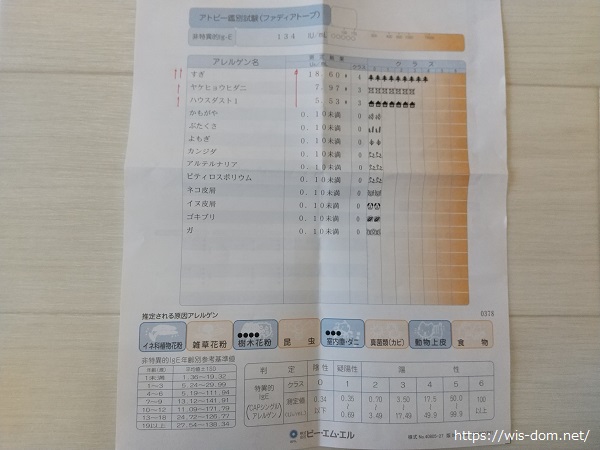 アトピー鑑別試験(ファディアトープ)
非特異的Ig-E 134 IU/mL
アレルゲン名 測定結果 クラス クラス
すぎ 18.60 4
ヤケヒョウヒダニ 7.97 3
ハウスダスト1 5.53 3
かもがや 0.10未満 0
ぶたくさ 0.10未満 0
よもぎ 0.10未満 0
カンジダ 0.10未満 0
アルテルナリア 0.10未満 0
ピティロスポリウム 0.10未満 0
ネコ皮屑 0.10未満 0
イヌ皮屑 0.10未満 0
ゴキブリ 0.10未満 0
ガ 0.10未満 0
推定される原因アレルゲン 0378
イネ科植物花粉 雑草花粉 樹木花粉 昆虫 室内塵・ダニ 真菌類(カビ) 動物上皮 食物
非特異的IgE年齢別参考基準値
年齢(歳) 平均値±1SD
1未満 1.36~19.32
1~3 5.24~29.99
4~6 5.19~111.94
7~9 13.12~141.91
10~12 11.09~171.79
13~18 24.72~126.77
19以上 27.54~138.34
判定 陰性 疑陽性 陽性
特異的IgE (CAPシングルアレルゲン)
クラス 0 1 2 3 4 5 6
測定値 (UA/mL) 0.34以下 0.35~0.69 0.70~3.49 3.50~17.49 17.5~49.9 50.0~99.9 100以上
株式会社 ビー・エム・エル
https://wis-dom.net/